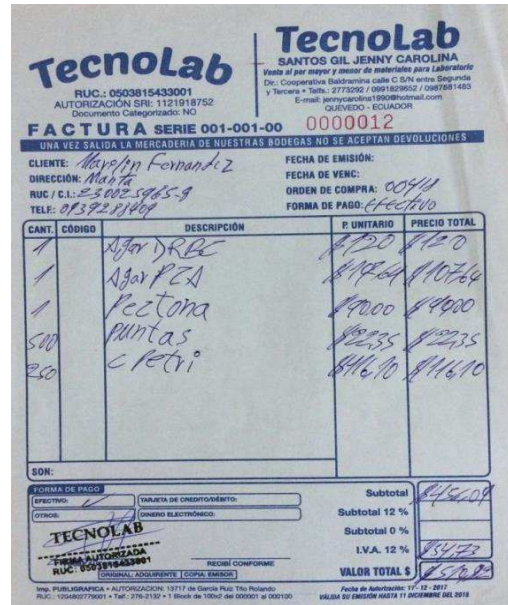 TecnoLab
RUC.: 0503815433001
AUTORIZACIÓN SRI: 1121918752
Documento Categorizado: NO
TecnoLab
SANTOS GIL JENNY CAROLINA
Venta al por mayor y menor de materiales para Laboratorio
Dir.: Cooperativa Baldramina calle C S/N entre Segunda
y Tercera • Telfs.: 2773292 / 0991829652 / 0987881483
E-mail: jennycarolina1990@hotmail.com
QUEVEDO - ECUADOR
FACTURA SERIE 001-001-00 0000012
UNA VEZ SALIDA LA MERCADERIA DE NUESTRAS BODEGAS NO SE ACEPTAN DEVOLUCIONES
CLIENTE: Fernandez
DIRECCIÓN: Manta
RUC / C.I.:
TELF.:
FECHA DE EMISIÓN:
FECHA DE VENC:
ORDEN DE COMPRA:
FORMA DE PAGO: Efectivo
CANT. CÓDIGO DESCRIPCIÓN P. UNITARIO PRECIO TOTAL
1 Agar DRBC $120 $120
1 Agar PCA $107,64 $107,64
1 Peztona $90.00 $90,00
500 puntas $22,35 $22,35
250 c Petri $116,10 $116,10
SON:
FORMA DE PAGO
EFECTIVO:
TARJETA DE CREDITO/DÉBITO:
OTROS:
DINERO ELECTRÓNICO:
TECNOLAB
FIRMA AUTORIZADA
RUC: 0503815433001
RECIBÍ CONFORME
ORIGINAL: ADQUIRENTE COPIA: EMISOR
Subtotal $456,09
Subtotal 12 %
Subtotal 0 %
I.V.A. 12 % $54,73
VALOR TOTAL $
Imp. PUBLIGRAFICA • AUTORIZACION: 13717 de García Ruiz Tito Rolando
RUC.: 1204802779001 • Telf.: 276-2132 • 1 Block de 100x2 del 000001 al 000100
Fecha de Autorización: 11 - 12 - 2017
VÁLIDA SU EMISIÓN HASTA 11 DICIEMBRE DEL 2018